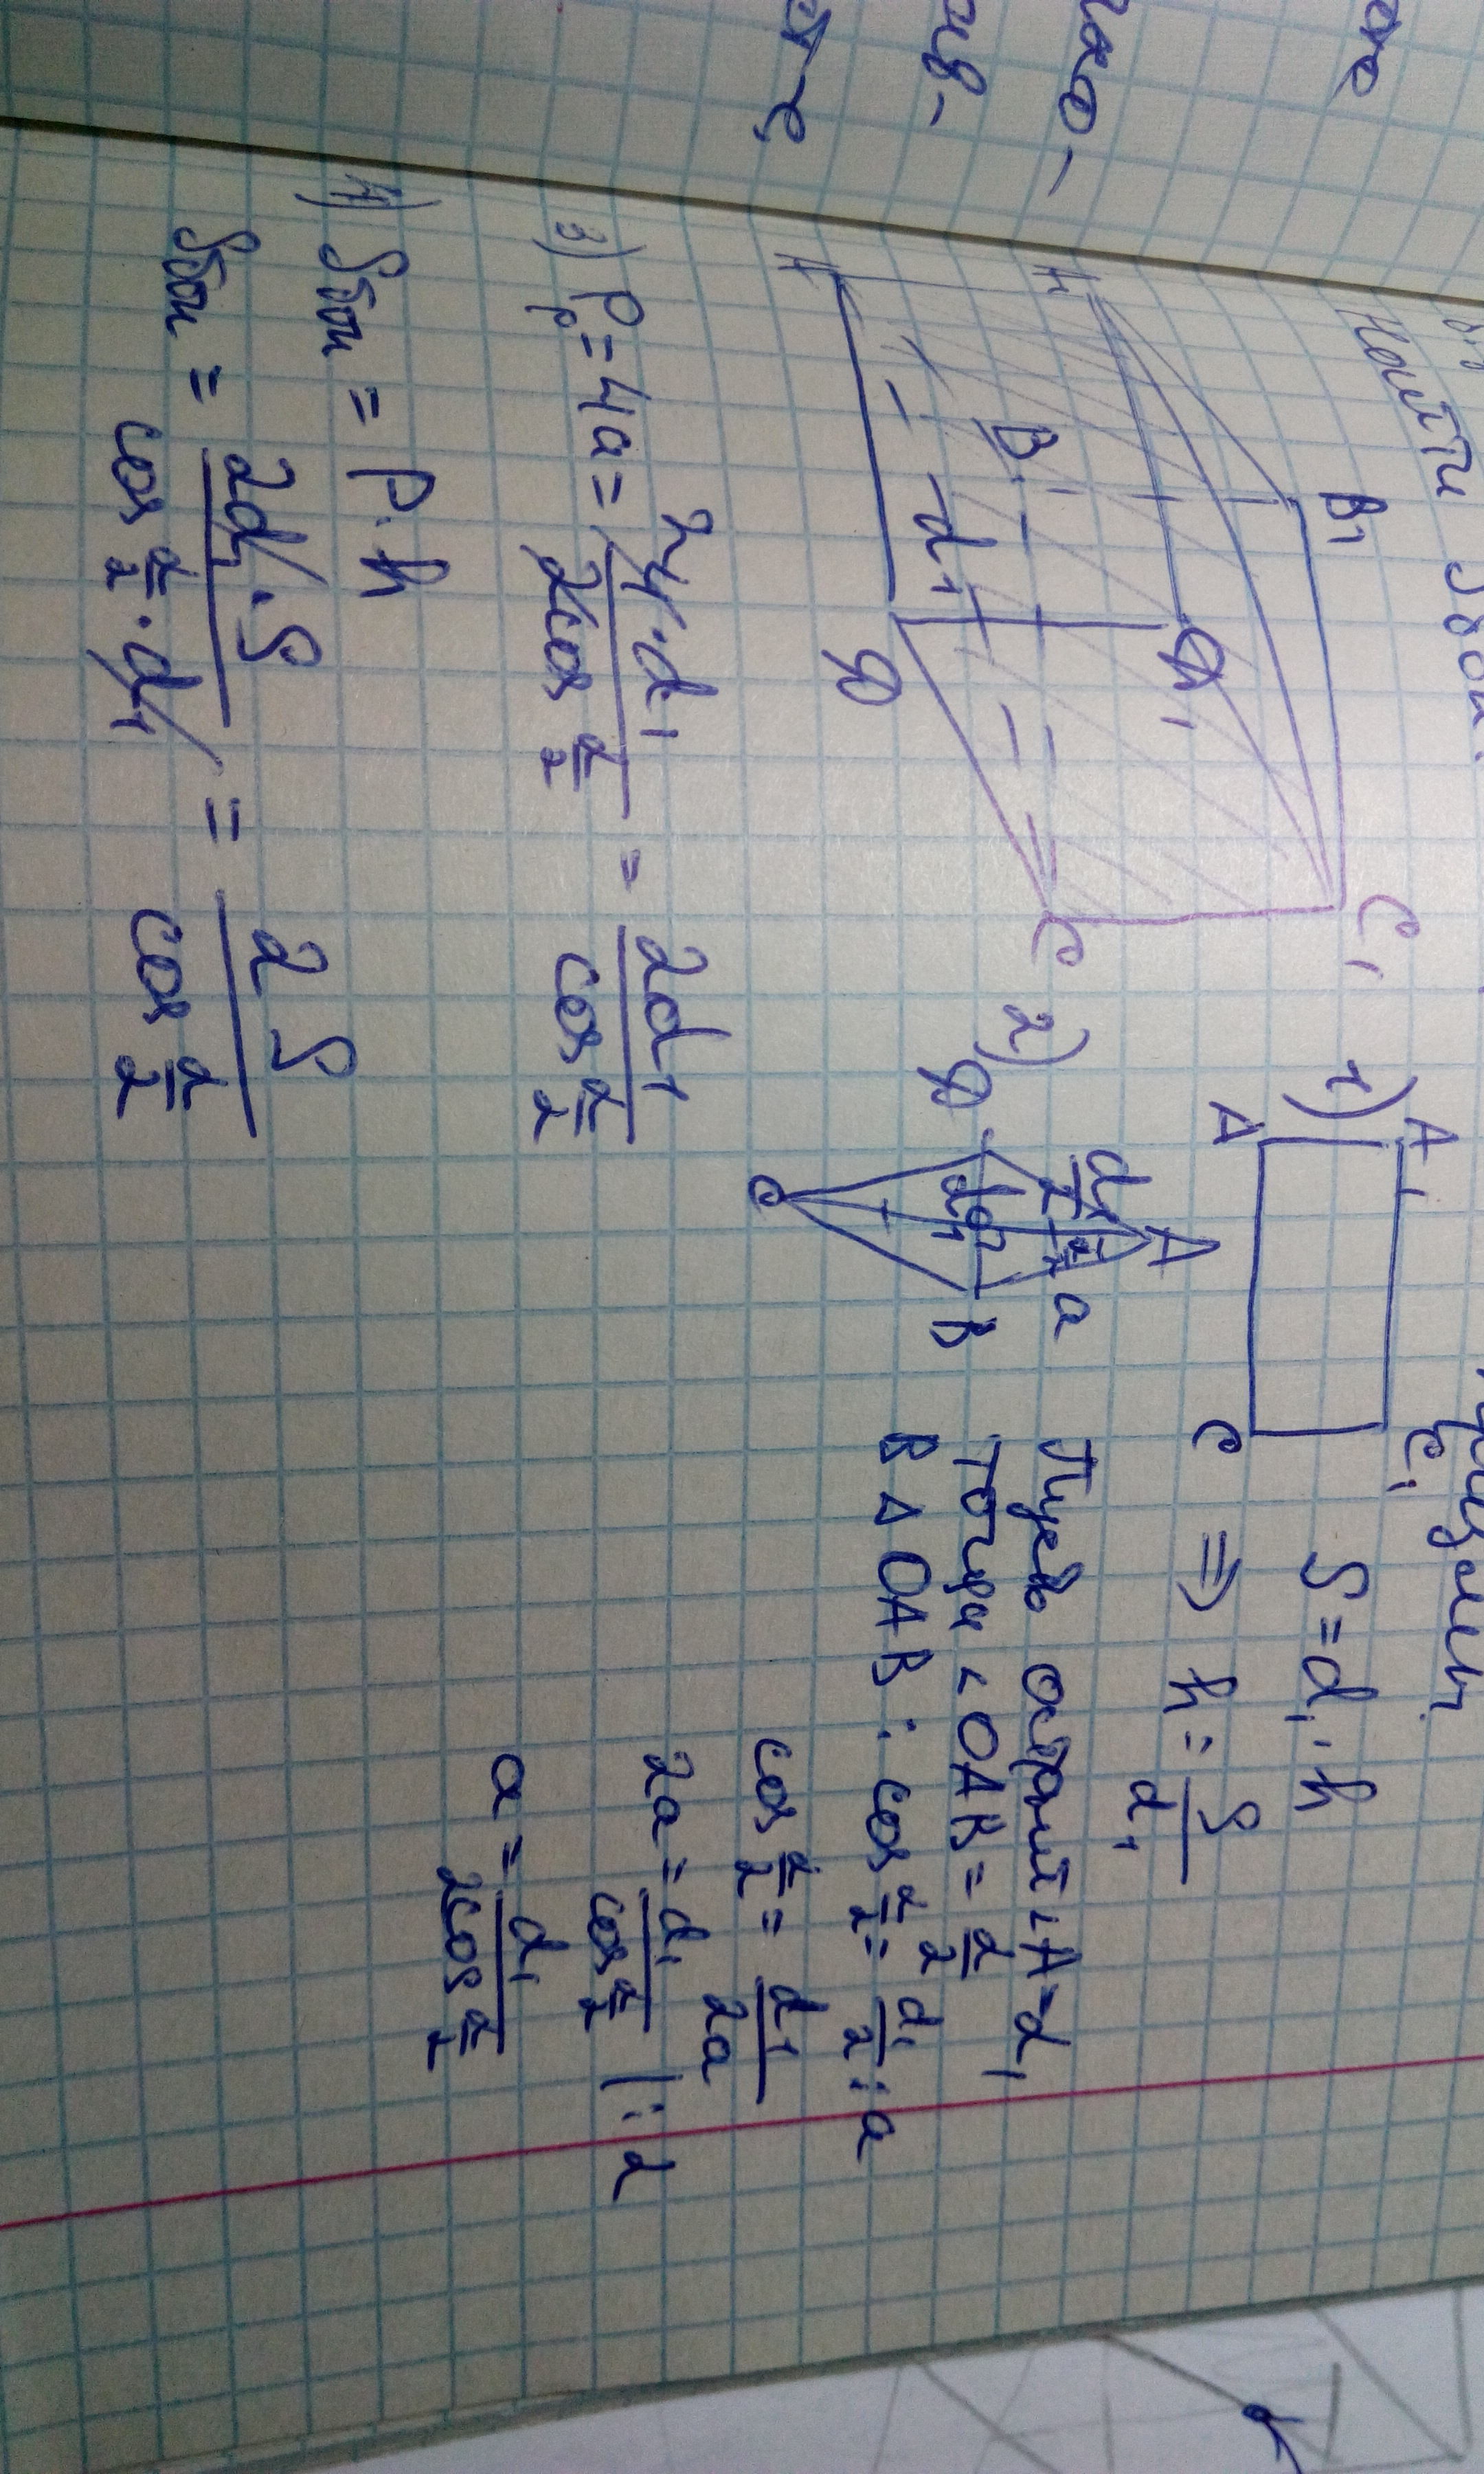 Найти Sбок.
B₁
C₁
A₁
D₁
B
d₁
D
C
1)
A₁
C₁
A
C
S = d₁ · h
⇒ h = S/d₁
2)
D
A
B
C
O
d₁
d₁/2
α/2
a
Пусть острый ∠A = α,
тогда ∠OAB = α/2
В Δ OAB: cos α/2 = d₁/2 : a
cos α/2 = d₁/2a
2a = d₁/cos α/2 |: 2
a = d₁/2cos α/2
3) Pₚ = 4a = 4 · d₁/2cos α/2 = 2d₁/cos α/2
4) Sбок = P · h
Sбок = 2d₁ · S/cos α/2 · d₁ = 2S/cos α/2